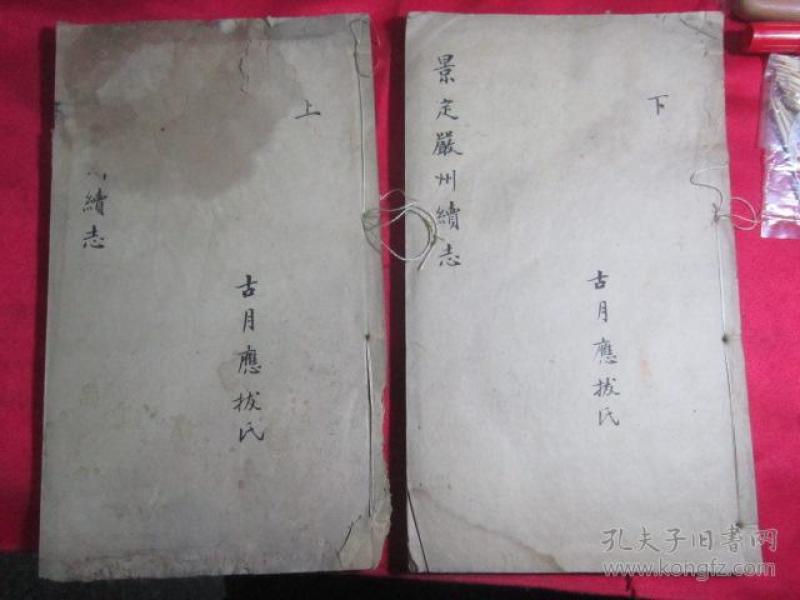 上
續志
古月應拔氏
下
景定嚴州續志
古月應拔氏
孔夫子旧书网
www.kongfz.com